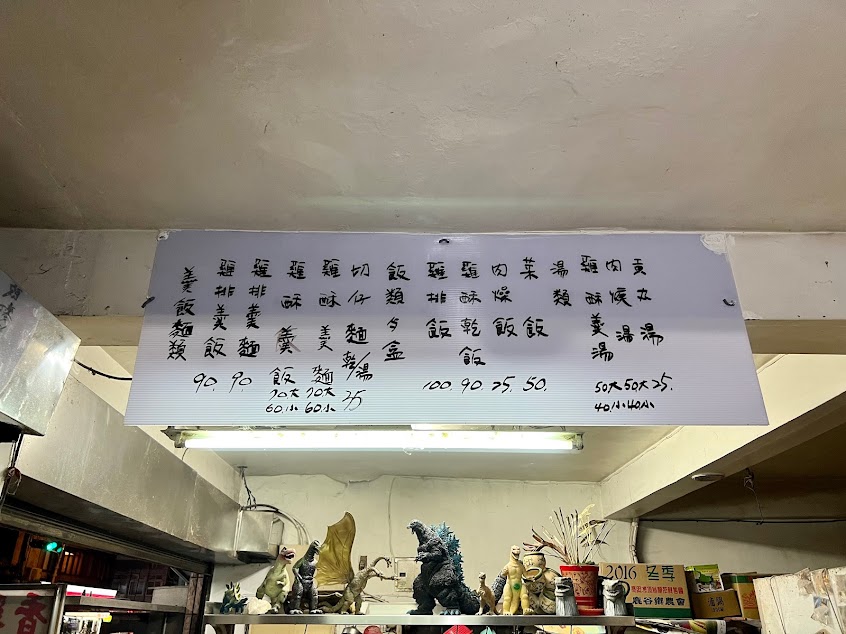 羹飯麵類
雞排羹飯 90.
雞排羹麵 90.
雞酥羹飯 70大 60小
雞酥羹麵 70大 60小
切仔麵乾/湯 25
飯類夕盒
雞排飯 100.
雞酥乾飯 90.
肉燥飯 25.
菜飯 50.
湯類
雞酥羹湯 50大 40小
肉焿湯 50大 40小
貢丸湯 25.
2016 冬季
鹿谷鄉農會
香